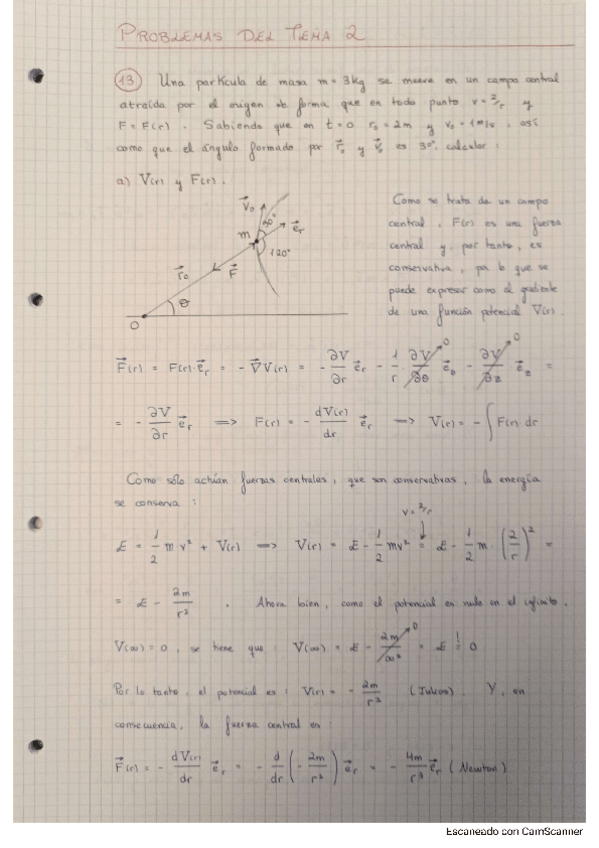 PROBLEMAS DEL TEMA 2
13 Una partícula de masa m = 3kg se mueve en un campo central
atraída por el origen de forma que en todo punto v = 2/r y
F = F(r). Sabiendo que en t = 0 r₀ = 2m y v₀ = 1m/s, así
como que el ángulo formado por r⃗₀ y v⃗₀ es 30°, calcular:
a) V(r) y F(r).
v⃗₀
30°
e⃗r
m
120°
r⃗₀
F⃗
θ
O
Como se trata de un campo
central, F(r) es una fuerza
central y, por tanto, es
conservativa, por lo que se
puede expresar como el gradiente
de una función potencial V(r).
F⃗(r) = F(r)·e⃗r = -∇⃗V(r) = -∂V/∂r e⃗r - 1/r ∂V/∂θ e⃗θ - ∂V/∂z e⃗z =
= -∂V/∂r e⃗r ⟹ F(r) = -dV(r)/dr e⃗r ⟹ V(r) = -∫F(r) dr
Como sólo actúan fuerzas centrales, que son conservativas, la energía
se conserva:
v = 2/r
E = 1/2 m v² + V(r) ⟹ V(r) = E - 1/2 mv² = E - 1/2 m · (2/r)² =
= E - 2m/r² . Ahora bien, como el potencial es nulo en el infinito,
V(∞) = 0, se tiene que: V(∞) = E - 2m/∞² = E = 0
Por lo tanto, el potencial es: V(r) = -2m/r² (Julios). Y, en
consecuencia, la fuerza central es:
F⃗(r) = -dV(r)/dr e⃗r = -d/dr (-2m/r²) e⃗r = -4m/r³ e⃗r (Newton)
Escaneado con CamScanner